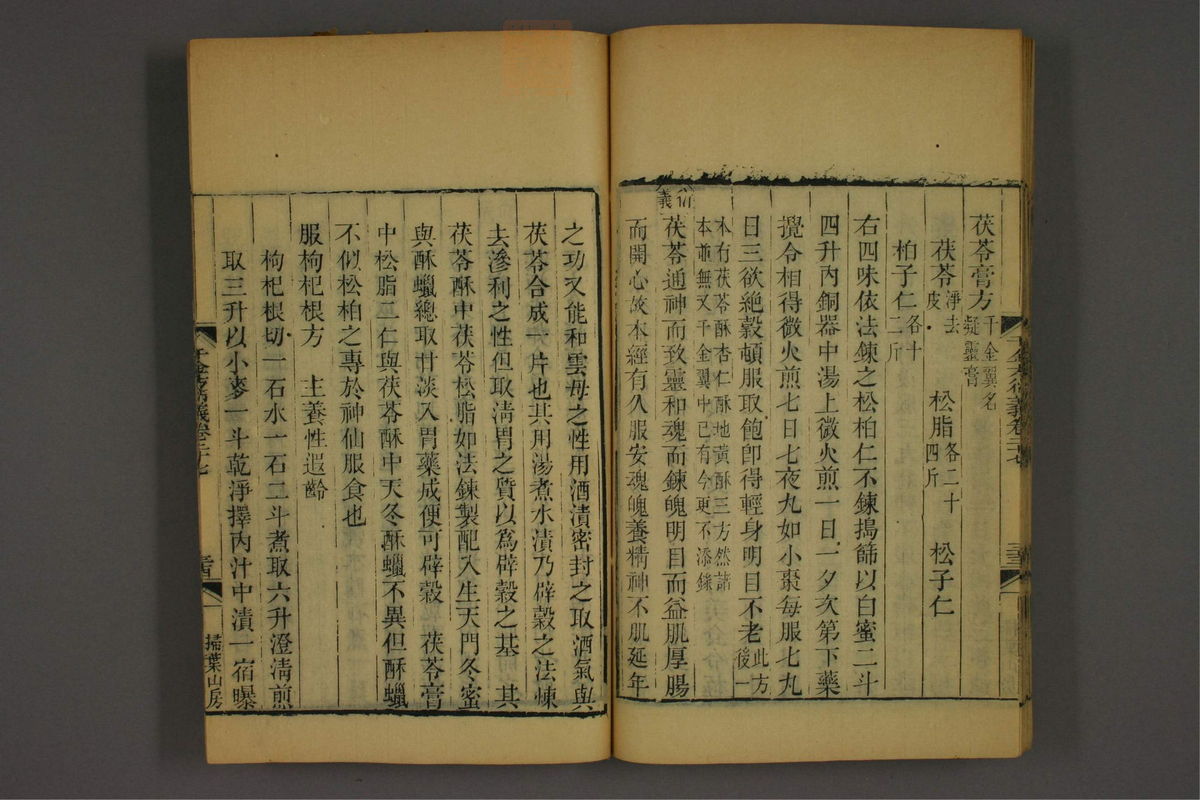 茯苓膏方千金翼名
凝靈膏
茯苓淨去
皮 松脂各二十
四斤 松子仁
柏子仁各十
二斤
右四味依法鍊之松柏仁不鍊搗篩以白蜜二斗
四升內銅器中湯上微火煎一日一夕次第下藥
攪令相得微火煎七日七夜丸如小棗每服七丸
日三欲絶穀頓服取飽卽得輕身明目不老此方
後一
本有茯苓酥杏仁酥地黃酥三方然諸
本並無又千金翼中已有今更不添錄
衍義
茯苓通神而致靈和魂而鍊魄明目而益肌厚腸
而開心故本經有久服安魂魄養精神不肌延年
之功又能和雲母之性用酒漬密封之取酒氣與
茯苓合成一片也其用湯煮水漬乃辟穀之法煉
去滲利之性但取淸胃之質以爲辟穀之基 其
茯苓酥中茯苓松脂如法鍊製配入生天門冬蜜
與酥蠟總取甘淡入胃藥成便可辟穀 茯苓膏
中松脂二仁與茯苓酥中天冬酥蠟不異但酥蠟
不似松柏之專於神仙服食也
服枸杞根方 主養性遐齡
枸杞根切一石水一石二斗煮取六升澄淸煎
取三升以小麥一斗乾淨擇內汁中漬一宿曝
千金方衍義卷二十七
掃葉山房